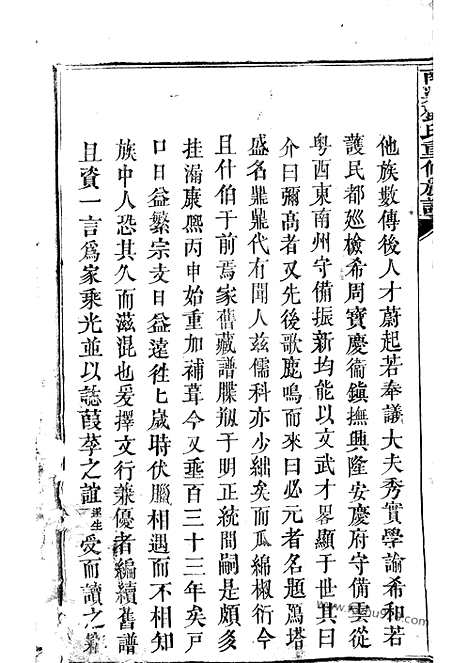 他族數傳後人才蔚起若奉議大夫秀實學諭希和若
護民都廵檢希周寶慶衞鎮撫興隆安慶府守備雲從
粤西東南州守備振新均能以文武才畧顯于世其曰
介曰彌高者又先後歌鹿鳴而來曰必元者名題鴈塔
盛名鼎鼎代有聞人兹儒科亦少絀矣而瓜綿椒衍今
且什伯于前焉家舊藏譜牒剏于明正統間嗣是頗多
挂漏康熙丙申始重加補葺今又垂百三十三年矣戸
口日益繁宗支日益遠徃徃歲時伏臘相遇而不相知
族中人恐其久而滋混也爰擇文行兼優者編續舊譜
且資一言爲家乘光並以誌葭莩之誼 生受而讀之
氏重修族譜